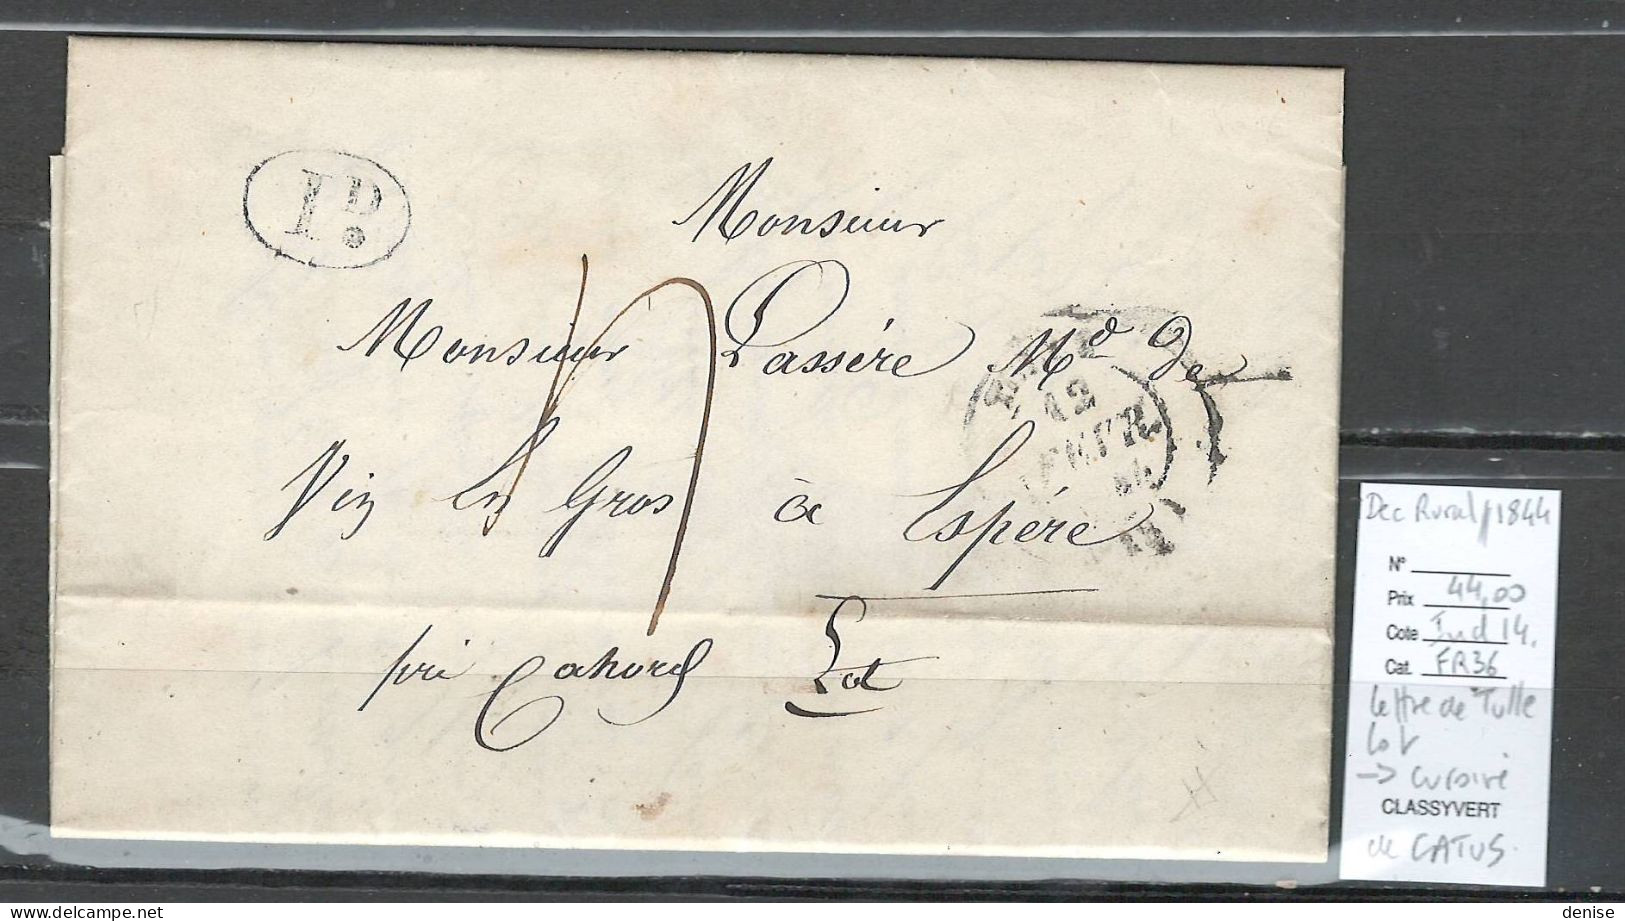 1D.
Monsieur
Monsieur Lassère Md De
Vin En Gros à Espère
pri Cahors Lot
12
FEVR.
44
4
Dec Rural 1844
N°
Prix 44,00
Cote Ind 14.
Cat. FR36
lettre de Tulle
Lot
-> cursive
CLASSYVERT
de CATUS.
denise